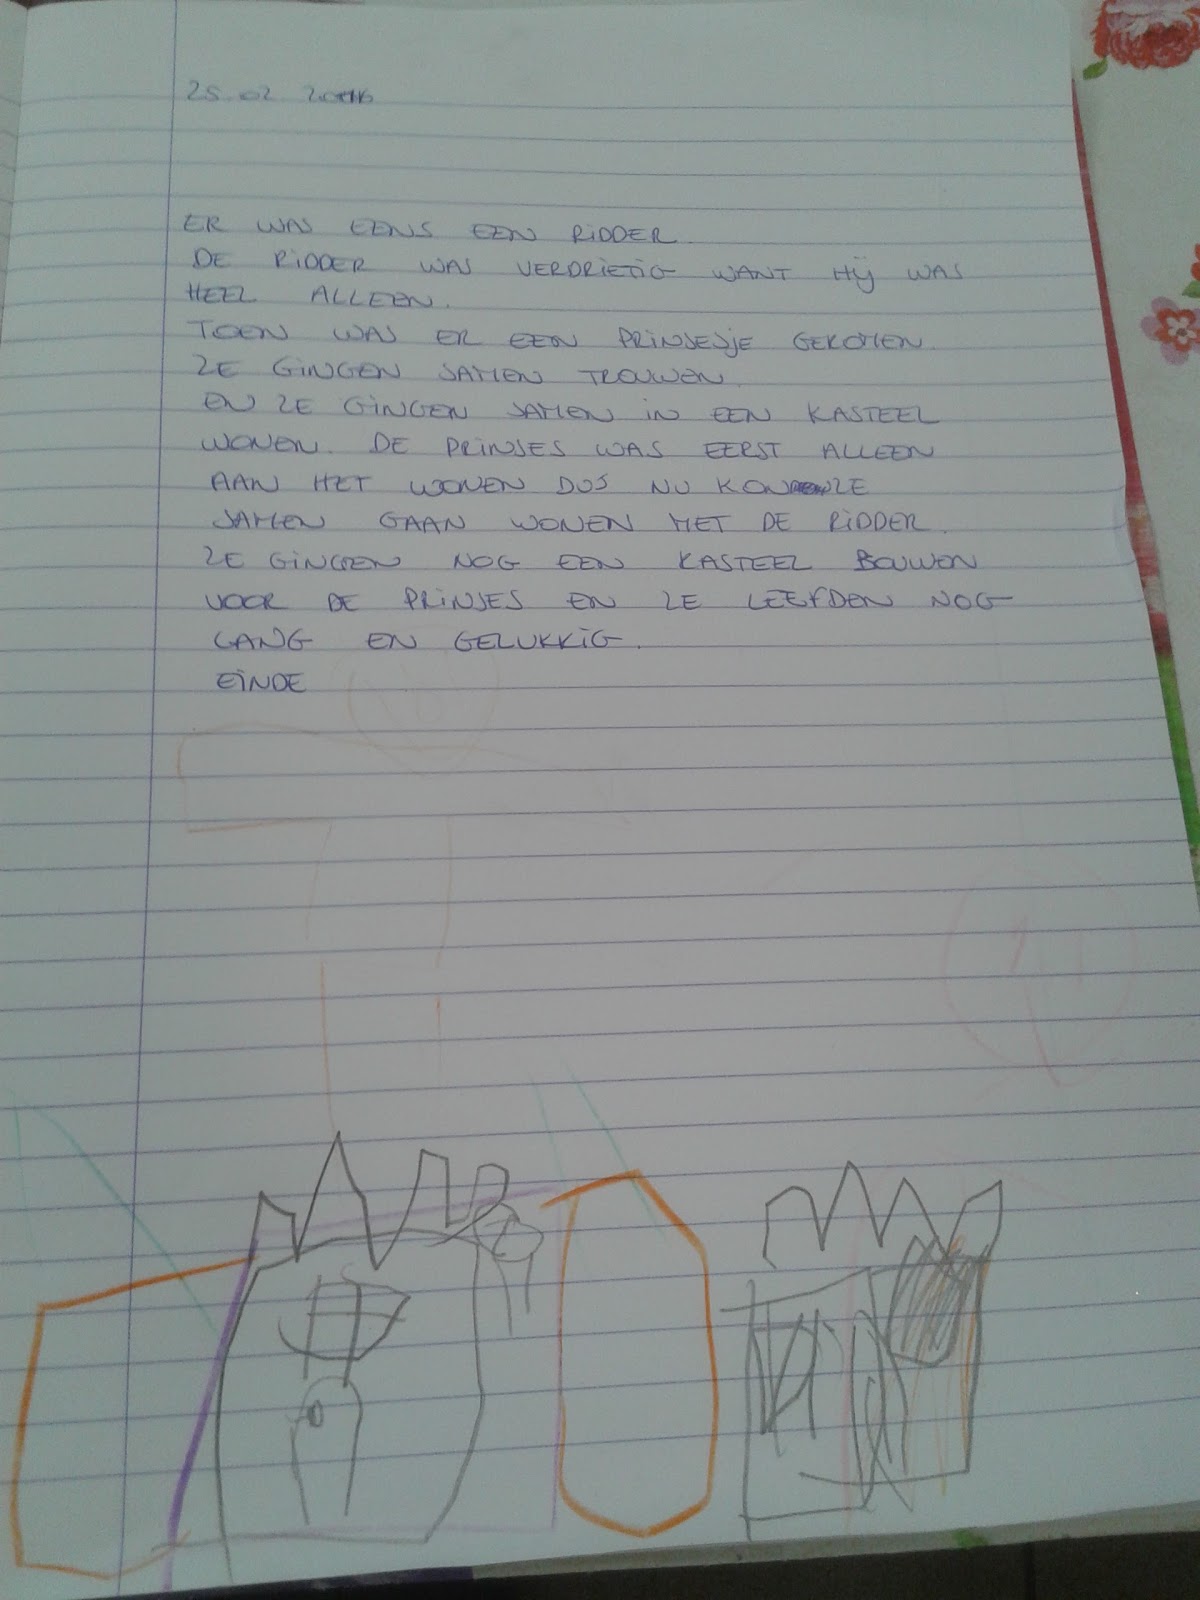 25.02 2016
ER WAS EENS EEN RIDDER.
DE RIDDER WAS VERDRIETIG WANT HIJ WAS
HEEL ALLEEN.
TOEN WAS ER EEN PRINSESJE GEKOMEN.
ZE GINGEN SAMEN TROUWEN.
EN ZE GINGEN SAMEN IN EEN KASTEEL
WONEN. DE PRINSES WAS EERST ALLEEN
AAN HET WONEN DUS NU KON ZE
SAMEN GAAN WONEN MET DE RIDDER.
ZE GINGEN NOG EEN KASTEEL BOUWEN
VOOR DE PRINSES EN ZE LEEFDEN NOG
LANG EN GELUKKIG.
EINDE